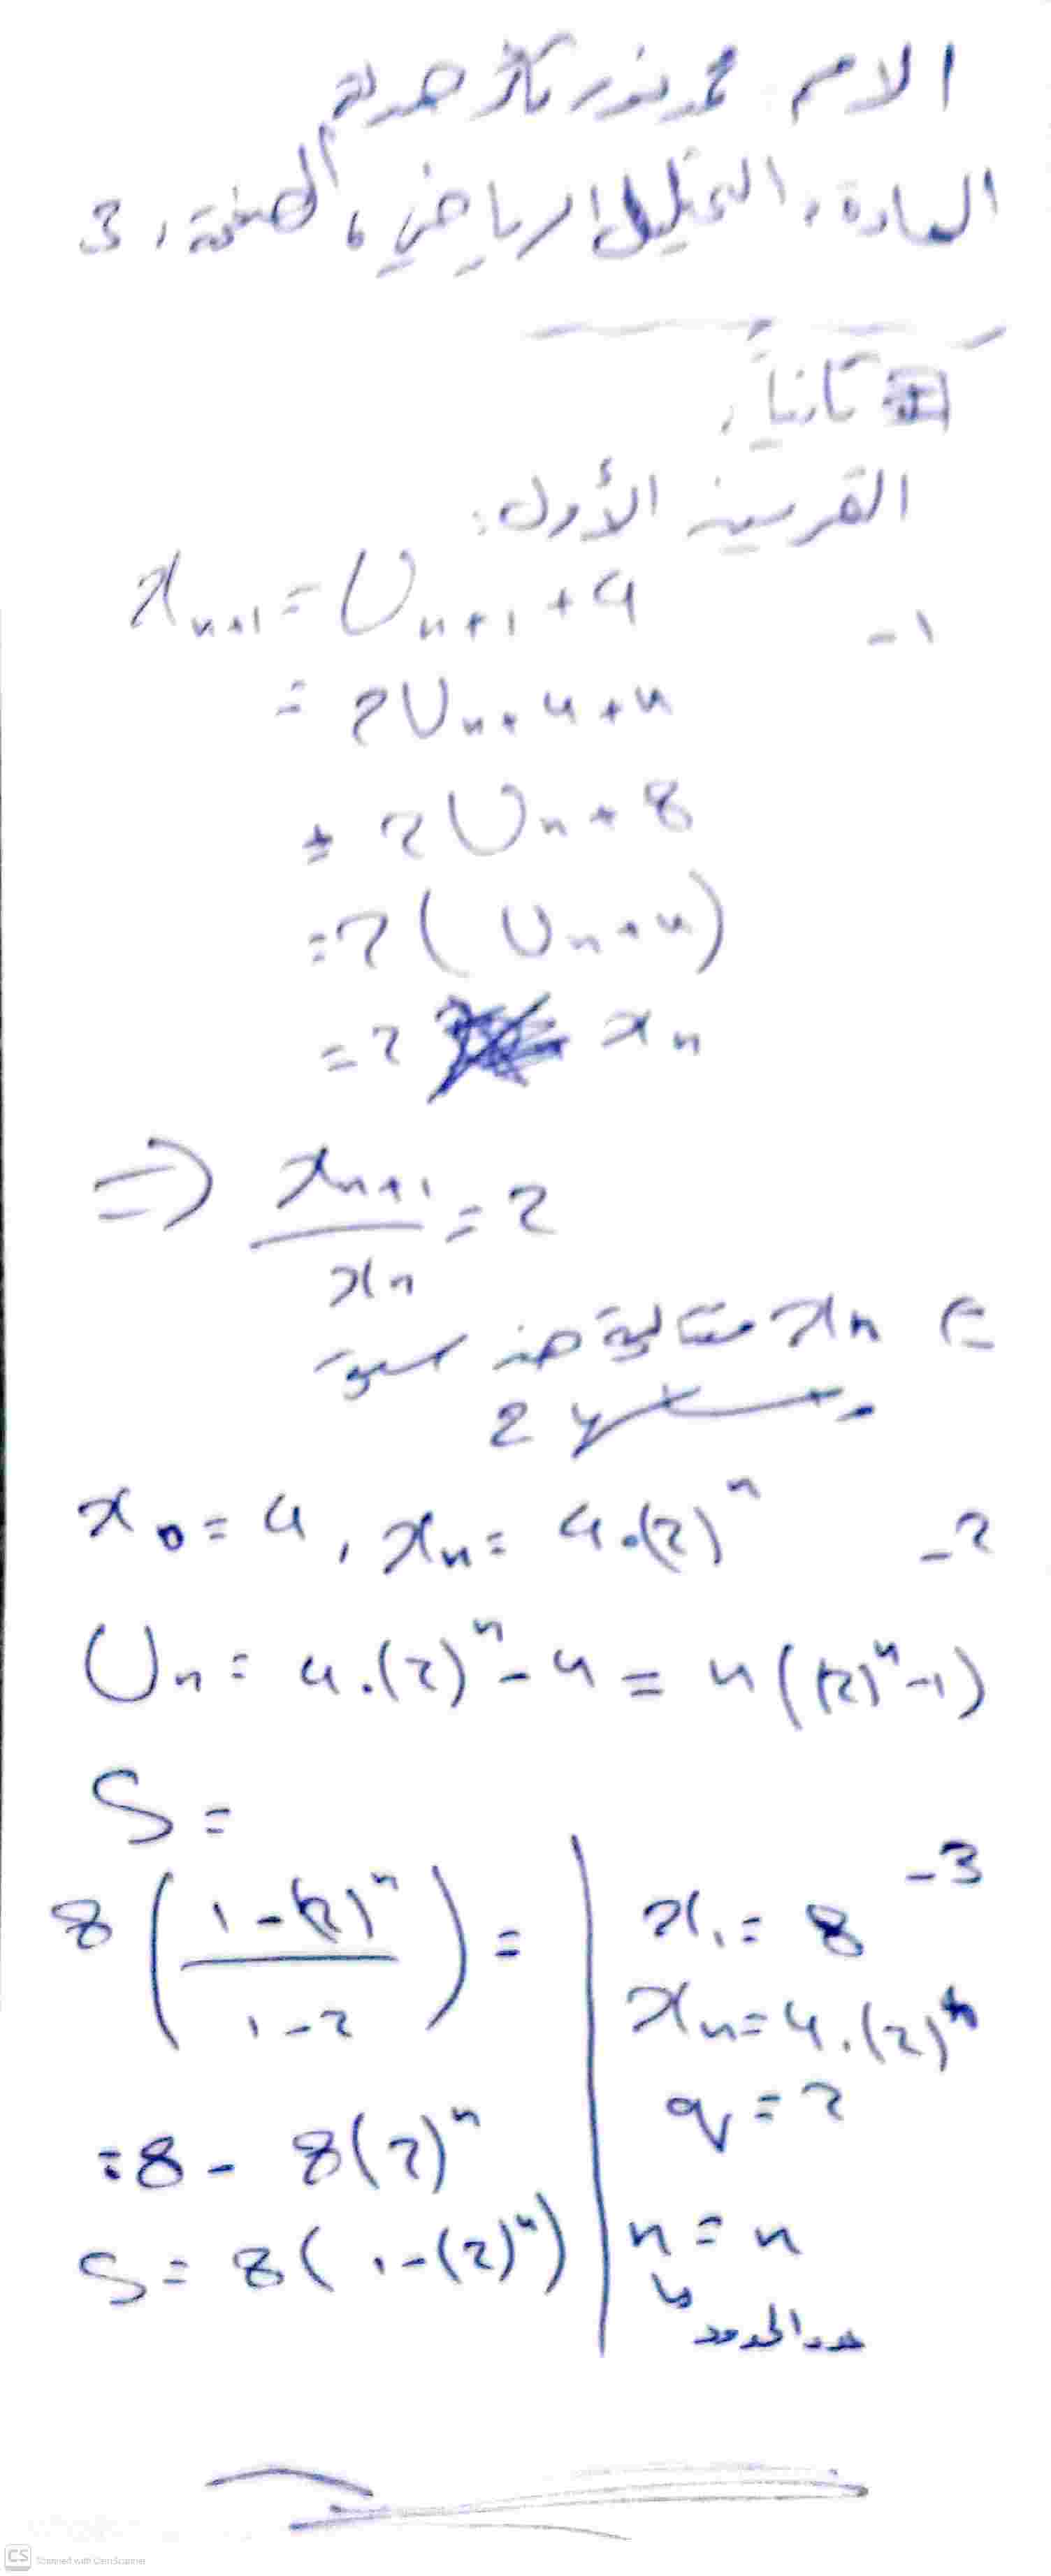 الاسم محمد نور
المادة: التحليل الرياضي، الصفحة: 3
ثانياً:
التمرين الأول:
1-
x_{n+1} = U_{n+1} + 4
= 2U_n + 4 + 4
= 2U_n + 8
= 2(U_n + 4)
= 2 x_n
⇒ x_{n+1} / x_n = 2
⇐ x_n متتالية هندسية
2
2-
x_0 = 4, x_n = 4.(2)^n
U_n = 4.(2)^n - 4 = 4((2)^n - 1)
3-
x_1 = 8
x_n = 4.(2)^n
q = 2
n = n
عدد الحدود
S =
8 ( (1 - (2)^n) / (1 - 2) ) =
= 8 - 8(2)^n
S = 8(1 - (2)^n)
CS Scanned with CamScanner